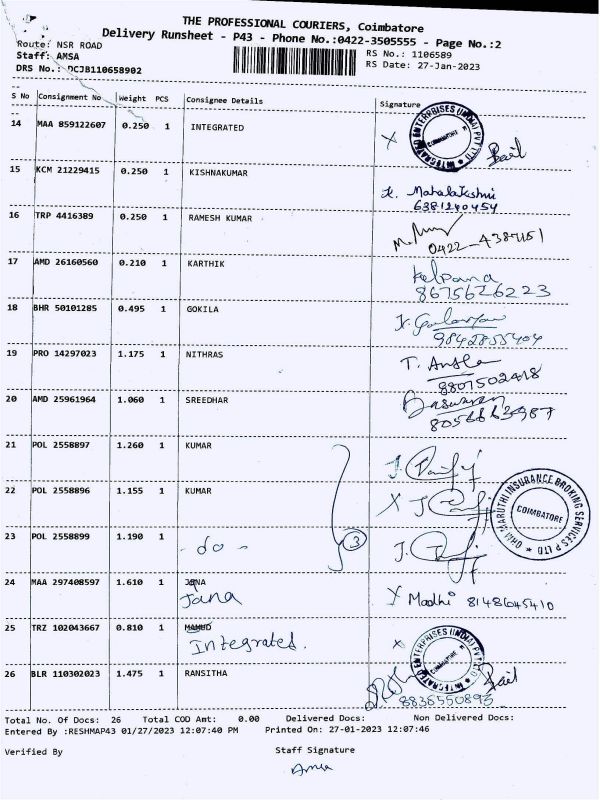 THE PROFESSIONAL COURIERS, Coimbatore
Delivery Runsheet - P43 - Phone No.:0422-3505555 - Page No.:2
Route: NSR ROAD
RS No.: 1106589
Staff: AMSA
RS Date: 27-Jan-2023
DRS No.: DCJB110658902
S No Consignment No Weight PCS Consignee Details Signature
14 MAA 859122607 0.250 1 INTEGRATED X
COIMBATORE
15 KCM 21229415 0.250 1 KISHNAKUMAR
Mahalakshmi
6381240454
16 TRP 4416389 0.250 1 RAMESH KUMAR
0422-4387151
17 AMD 26160560 0.210 1 KARTHIK Kalpana
8675626223
18 BHR 50101285 0.495 1 GOKILA
9842855404
19 PRO 14297023 1.175 1 NITHRAS
8807502418
20 AMD 25961964 1.060 1 SREEDHAR
21 POL 2558897 1.260 1 KUMAR
22 POL 2558896 1.155 1 KUMAR X
OHAI MARUTHI INSURANCE BROKING SERVICES P LTD
COIMBATORE
23 POL 2558899 1.190 1 - do - 3
24 MAA 297408597 1.610 1 JANA
Jana
Madhi 8148645410
25 TRZ 102043667 0.810 1
Integrated. X
COIMBATORE
26 BLR 110302023 1.475 1 RANSITHA
8838550893
Total No. Of Docs: 26 Total COD Amt: 0.00 Delivered Docs: Non Delivered Docs:
Entered By :RESHMAP43 01/27/2023 12:07:40 PM Printed On: 27-01-2023 12:07:46
Verified By Staff Signature
Amsa